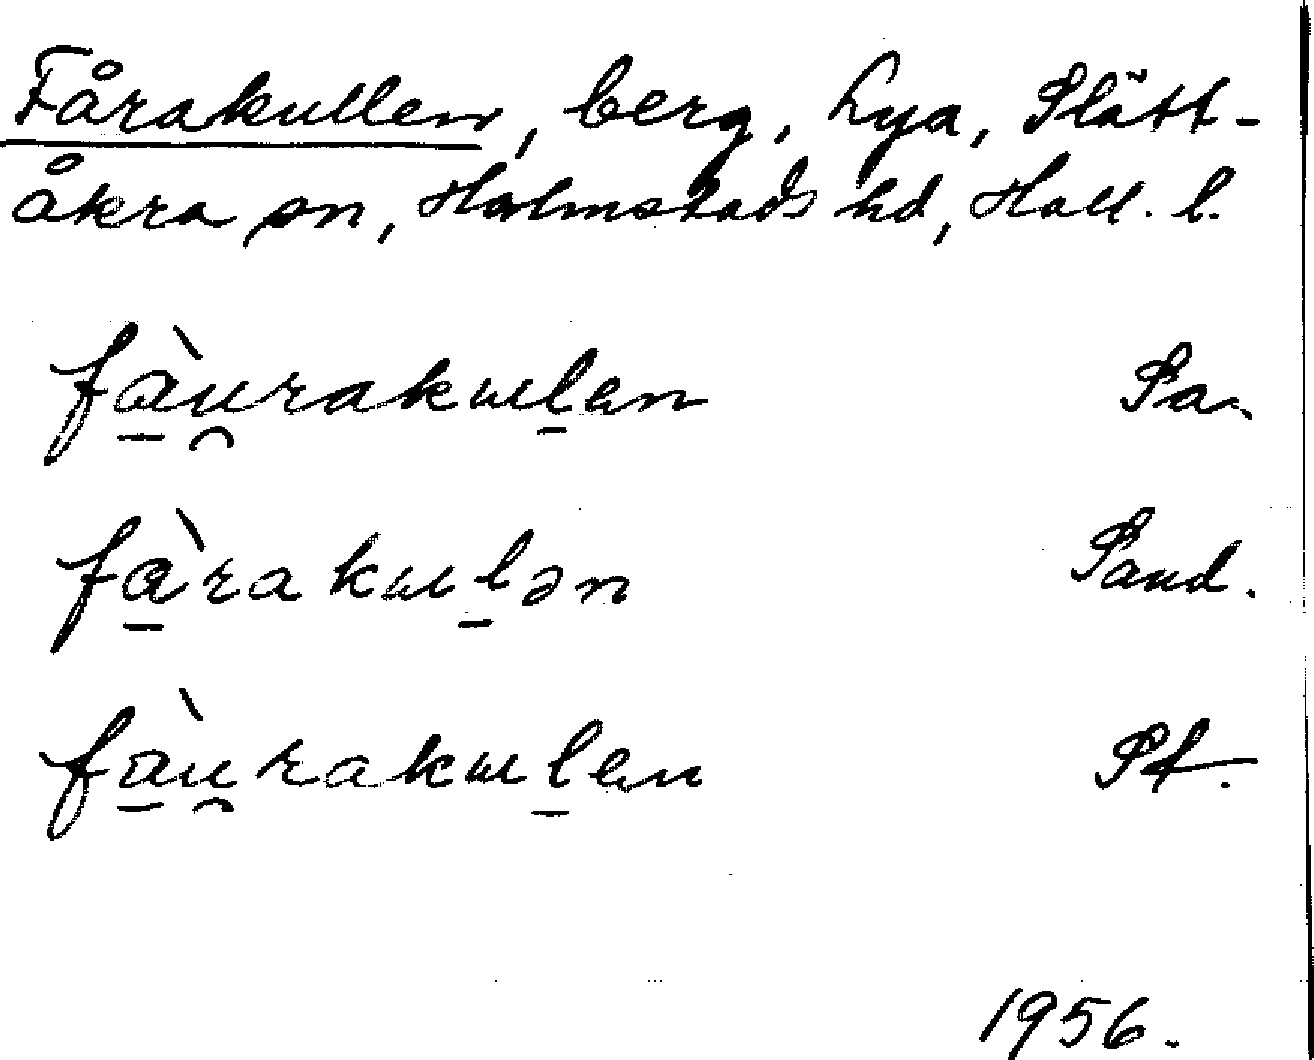 Fårakullen, berg, Lya, Slätt-
åkra sn, Halmstads hd, Hall. l.
fà̱u̯rakɯḻen Sa.
fà̱rakɯḻən Sand.
fà̱u̯rakɯḻen St.
1956.